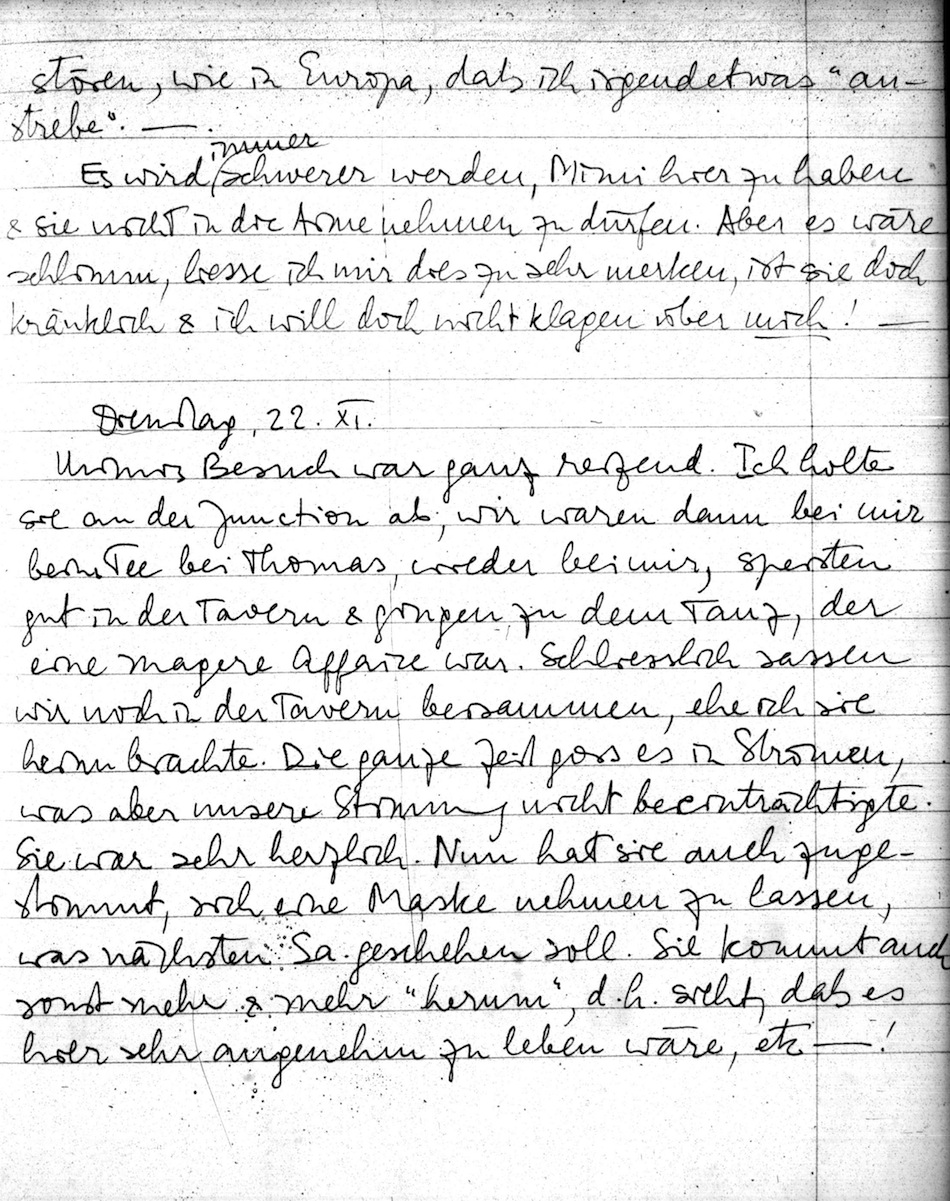 stören, wie in Europa, daß ich irgendetwas "an-
strebe". —.
immer
Es wird schwerer werden, Mimi hier zu haben
& sie nicht in die Arme nehmen zu dürfen. Aber es wäre
schlimm, liesse ich mir dies zu sehr merken, ist sie doch
kränklich & ich will doch nicht klagen über mich! —
Dienstag, 22. XI.
Mimis Besuch war ganz reizend. Ich holte
sie an der Junction ab, wir waren dann bei mir
beim Tee bei Thomas, wieder bei mir, speisten
gut in der Tavern & gingen zu dem Tanz, der
eine magere Affaire war. Schliesslich sassen
wir noch in der Tavern beisammen, ehe ich sie
heim brachte. Die ganze Zeit goss es in Strömen,
was aber unsere Stimmung nicht beeinträchtigte.
Sie war sehr herzlich. Nun hat sie auch zuge-
stimmt, sich eine Maske nehmen zu lassen,
was nächsten Sa. geschehen soll. Sie kommt auch
sonst mehr & mehr "herum", d.h. sieht, daß es
hier sehr angenehm zu leben wäre, etc —!